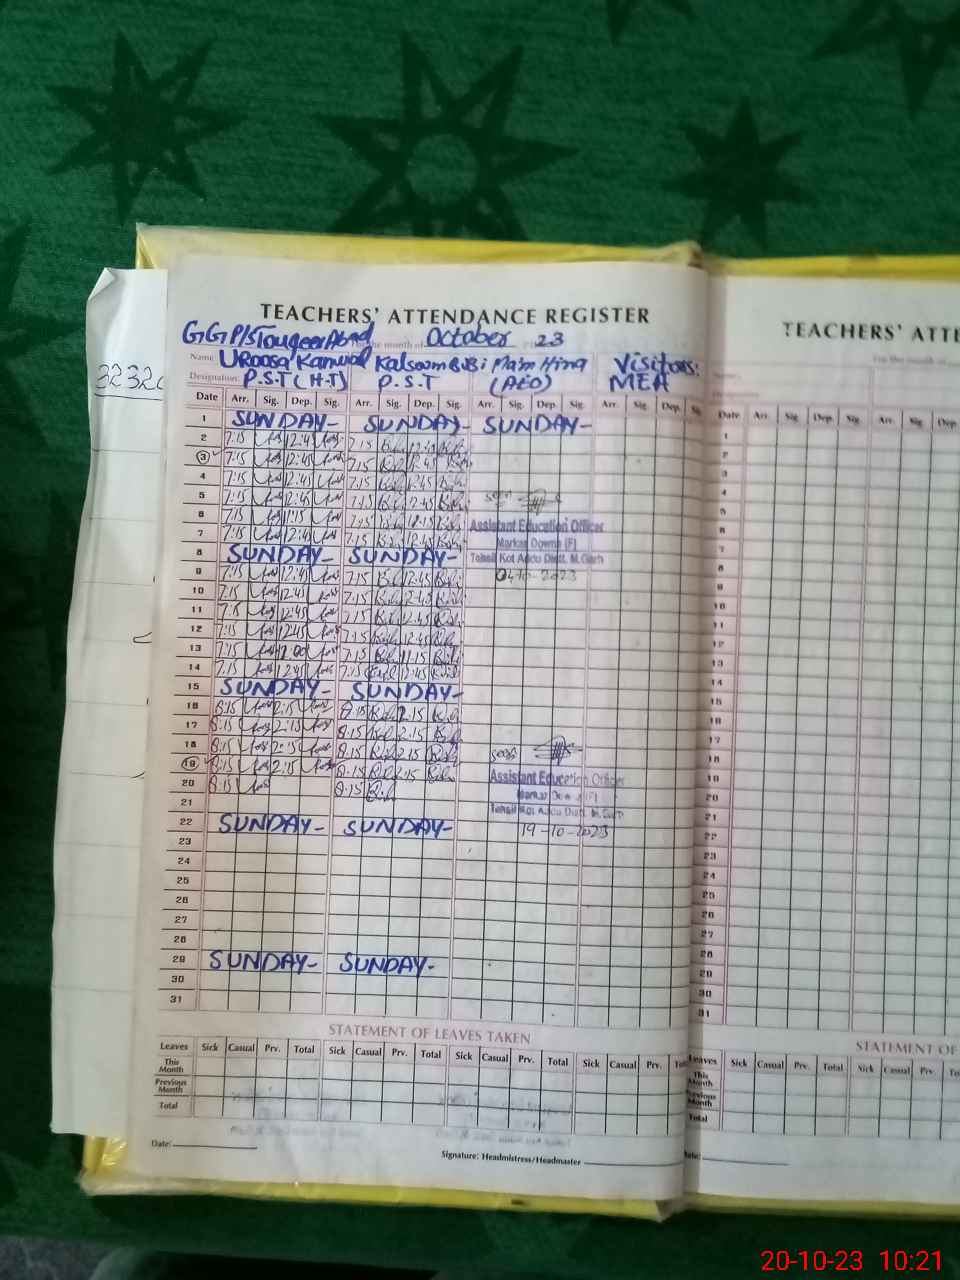 TEACHERS' ATTENDANCE REGISTER
GGP/S Touqeer Abad For the month of October 23
Name: Uroosa Kanwal Kalsoom BiBi Ma'm Hina Visitors:
Designation: P.S.T (H.T) P.S.T (AEO) MEA
Date Arr. Sig. Dep. Sig. Arr. Sig. Dep. Sig. Arr. Sig. Dep. Sig. Arr. Sig. Dep. Sig.
1 SUNDAY- SUNDAY- SUNDAY-
2 7:15 12:45 7:15 12:45
3 7:15 12:45 7:15 12:45
4 7:15 12:45 7:15 12:45
5 7:15 12:45 7:15 12:45
6 7:15 11:15 7:15
7 7:15 12:45 7:15 12:45
8 SUNDAY- SUNDAY-
9 7:15 12:45 7:15 12:45
10 7:15 12:45 7:15 12:45
11 7:15 12:45 7:15 12:45
12 7:15 12:45 7:15 12:45
13 7:15 12:00 7:15 11:15
14 7:15 12:45 7:15 12:45
15 SUNDAY- SUNDAY-
16 8:15 2:15 8:15 2:15
17 8:15 2:15 8:15 2:15
18 8:15 2:15 8:15 2:15
19 8:15 2:15 8:15 2:15
20 8:15 8:15
21
22 SUNDAY- SUNDAY-
23
24
25
26
27
28
29 SUNDAY- SUNDAY-
30
31
seen
Assistant Education Officer
Markaz (F)
Tehsil Kot Addu Distt. M.Garh
04-10-2023
seen
Assistant Education Officer
Markaz (F)
Tehsil Kot Addu Distt. M.Garh
19-10-2023
STATEMENT OF LEAVES TAKEN
Leaves Sick Casual Prv. Total Sick Casual Prv. Total Sick Casual Prv. Total Sick Casual Prv.
This Month
Previous Month
Total
Date:
Signature: Headmistress/Headmaster
TEACHERS' ATTE
For the month of
Date Arr. Sig. Dep. Sig. Arr. Sig. Dep
1
2
3
4
5
6
7
8
9
10
11
12
13
14
15
16
17
18
19
20
21
22
23
24
25
26
27
28
29
30
31
STATEMENT OF
Leaves Sick Casual Prv. Total Sick Casual Prv.
This Month
Previous Month
Total
Date:
20-10-23 10:21